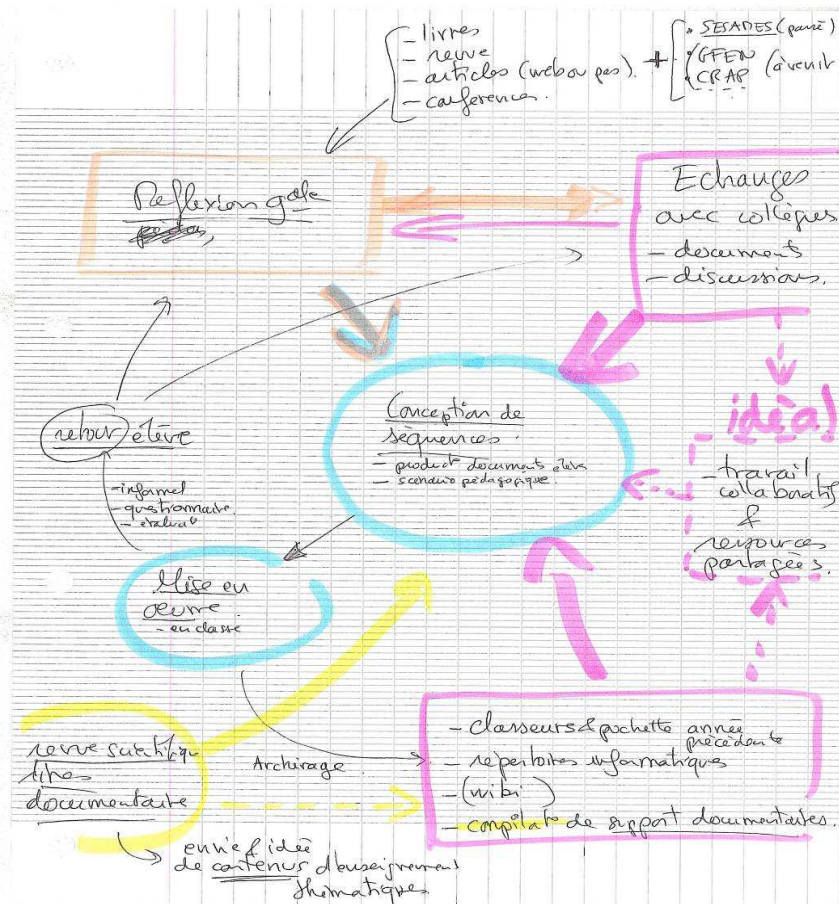 - livres
- revue
- articles (web ou pas).
- conferences.
+
• SESAMES (passé)
• GFEN
• CRAP
(à venir
Reflexion gale
Echanges
avec collègues
- documents
- discussions.
Conception de
séquences.
- product documents élève
- scénario pédagogique
idéal
- travail
collaboratif
&
ressources
partagées.
retour élève
- informel
- questionnaire
- évaluat
Mise en
œuvre.
- en classe
revue scientifiq
livres
documentaire
Archivage
- classeurs & pochette année
précédente
- répertoires informatiques
- (wiki)
- compilat de support documentaires.
envie & idée
de contenus d'enseignement
thématiques